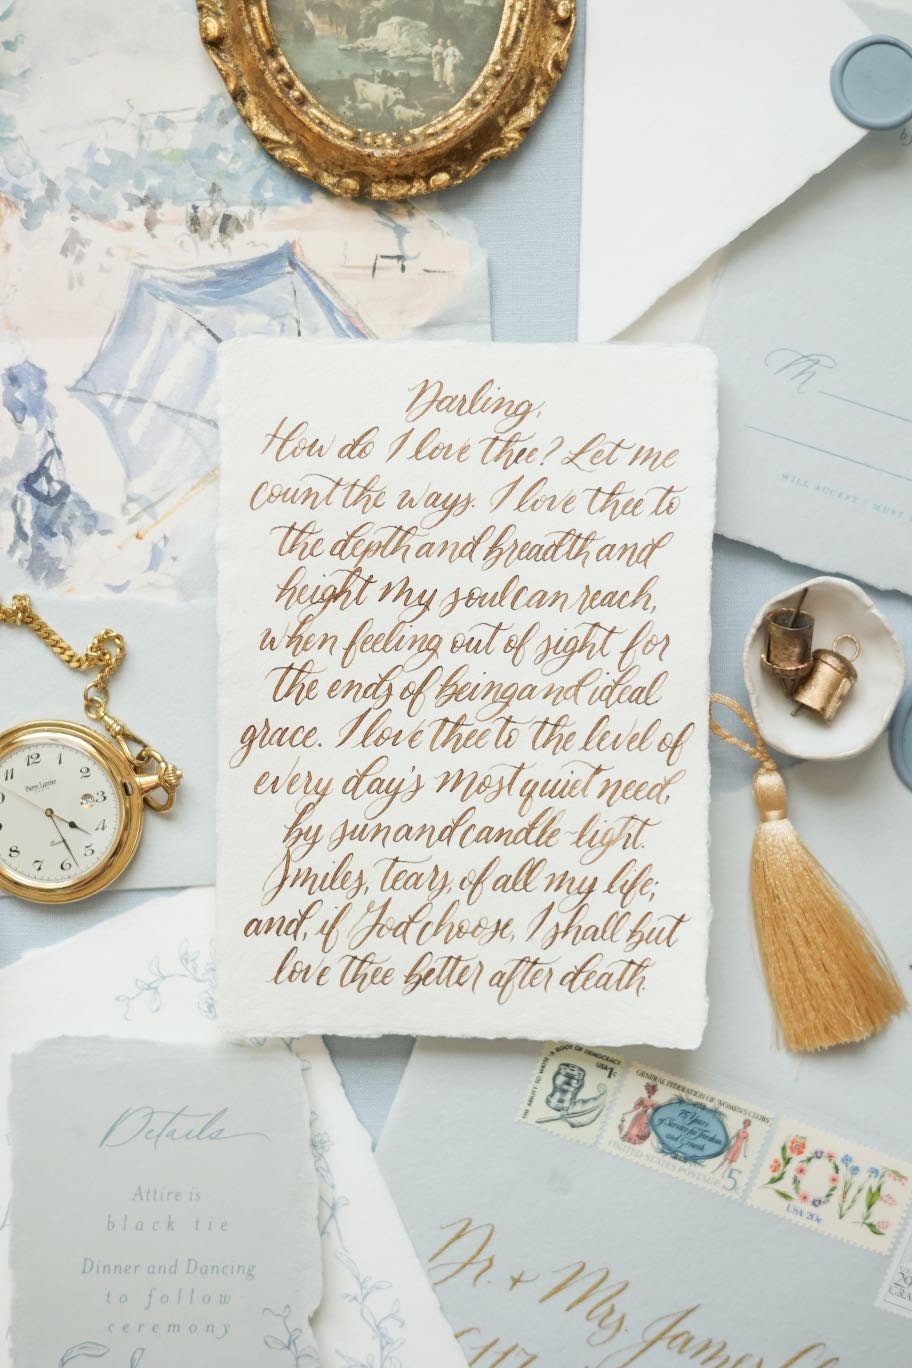 Darling,
How do I love thee? Let me
count the ways. I love thee to
the depth and breadth and
height my soul can reach,
when feeling out of sight for
the ends of being and ideal
grace. I love thee to the level of
every day's most quiet need,
by sun and candle-light.
Smiles, tears, of all my life;
and, if God choose, I shall but
love thee better after death.
M
WILL ACCEPT / MUST
11 12 1 2 3 4 5 7 8
Pierre Lannier
Details
Attire is
black tie
Dinner and Dancing
to follow
ceremony
THE ABILITY TO WRITE · A ROOT OF DEMOCRACY
USA 1c
GENERAL FEDERATION OF WOMEN'S CLUBS
75 Years
of Service for Freedom
and Growth
UNITED STATES POSTAGE 5
LOVE
USA 20c
Dr. + Mrs. James